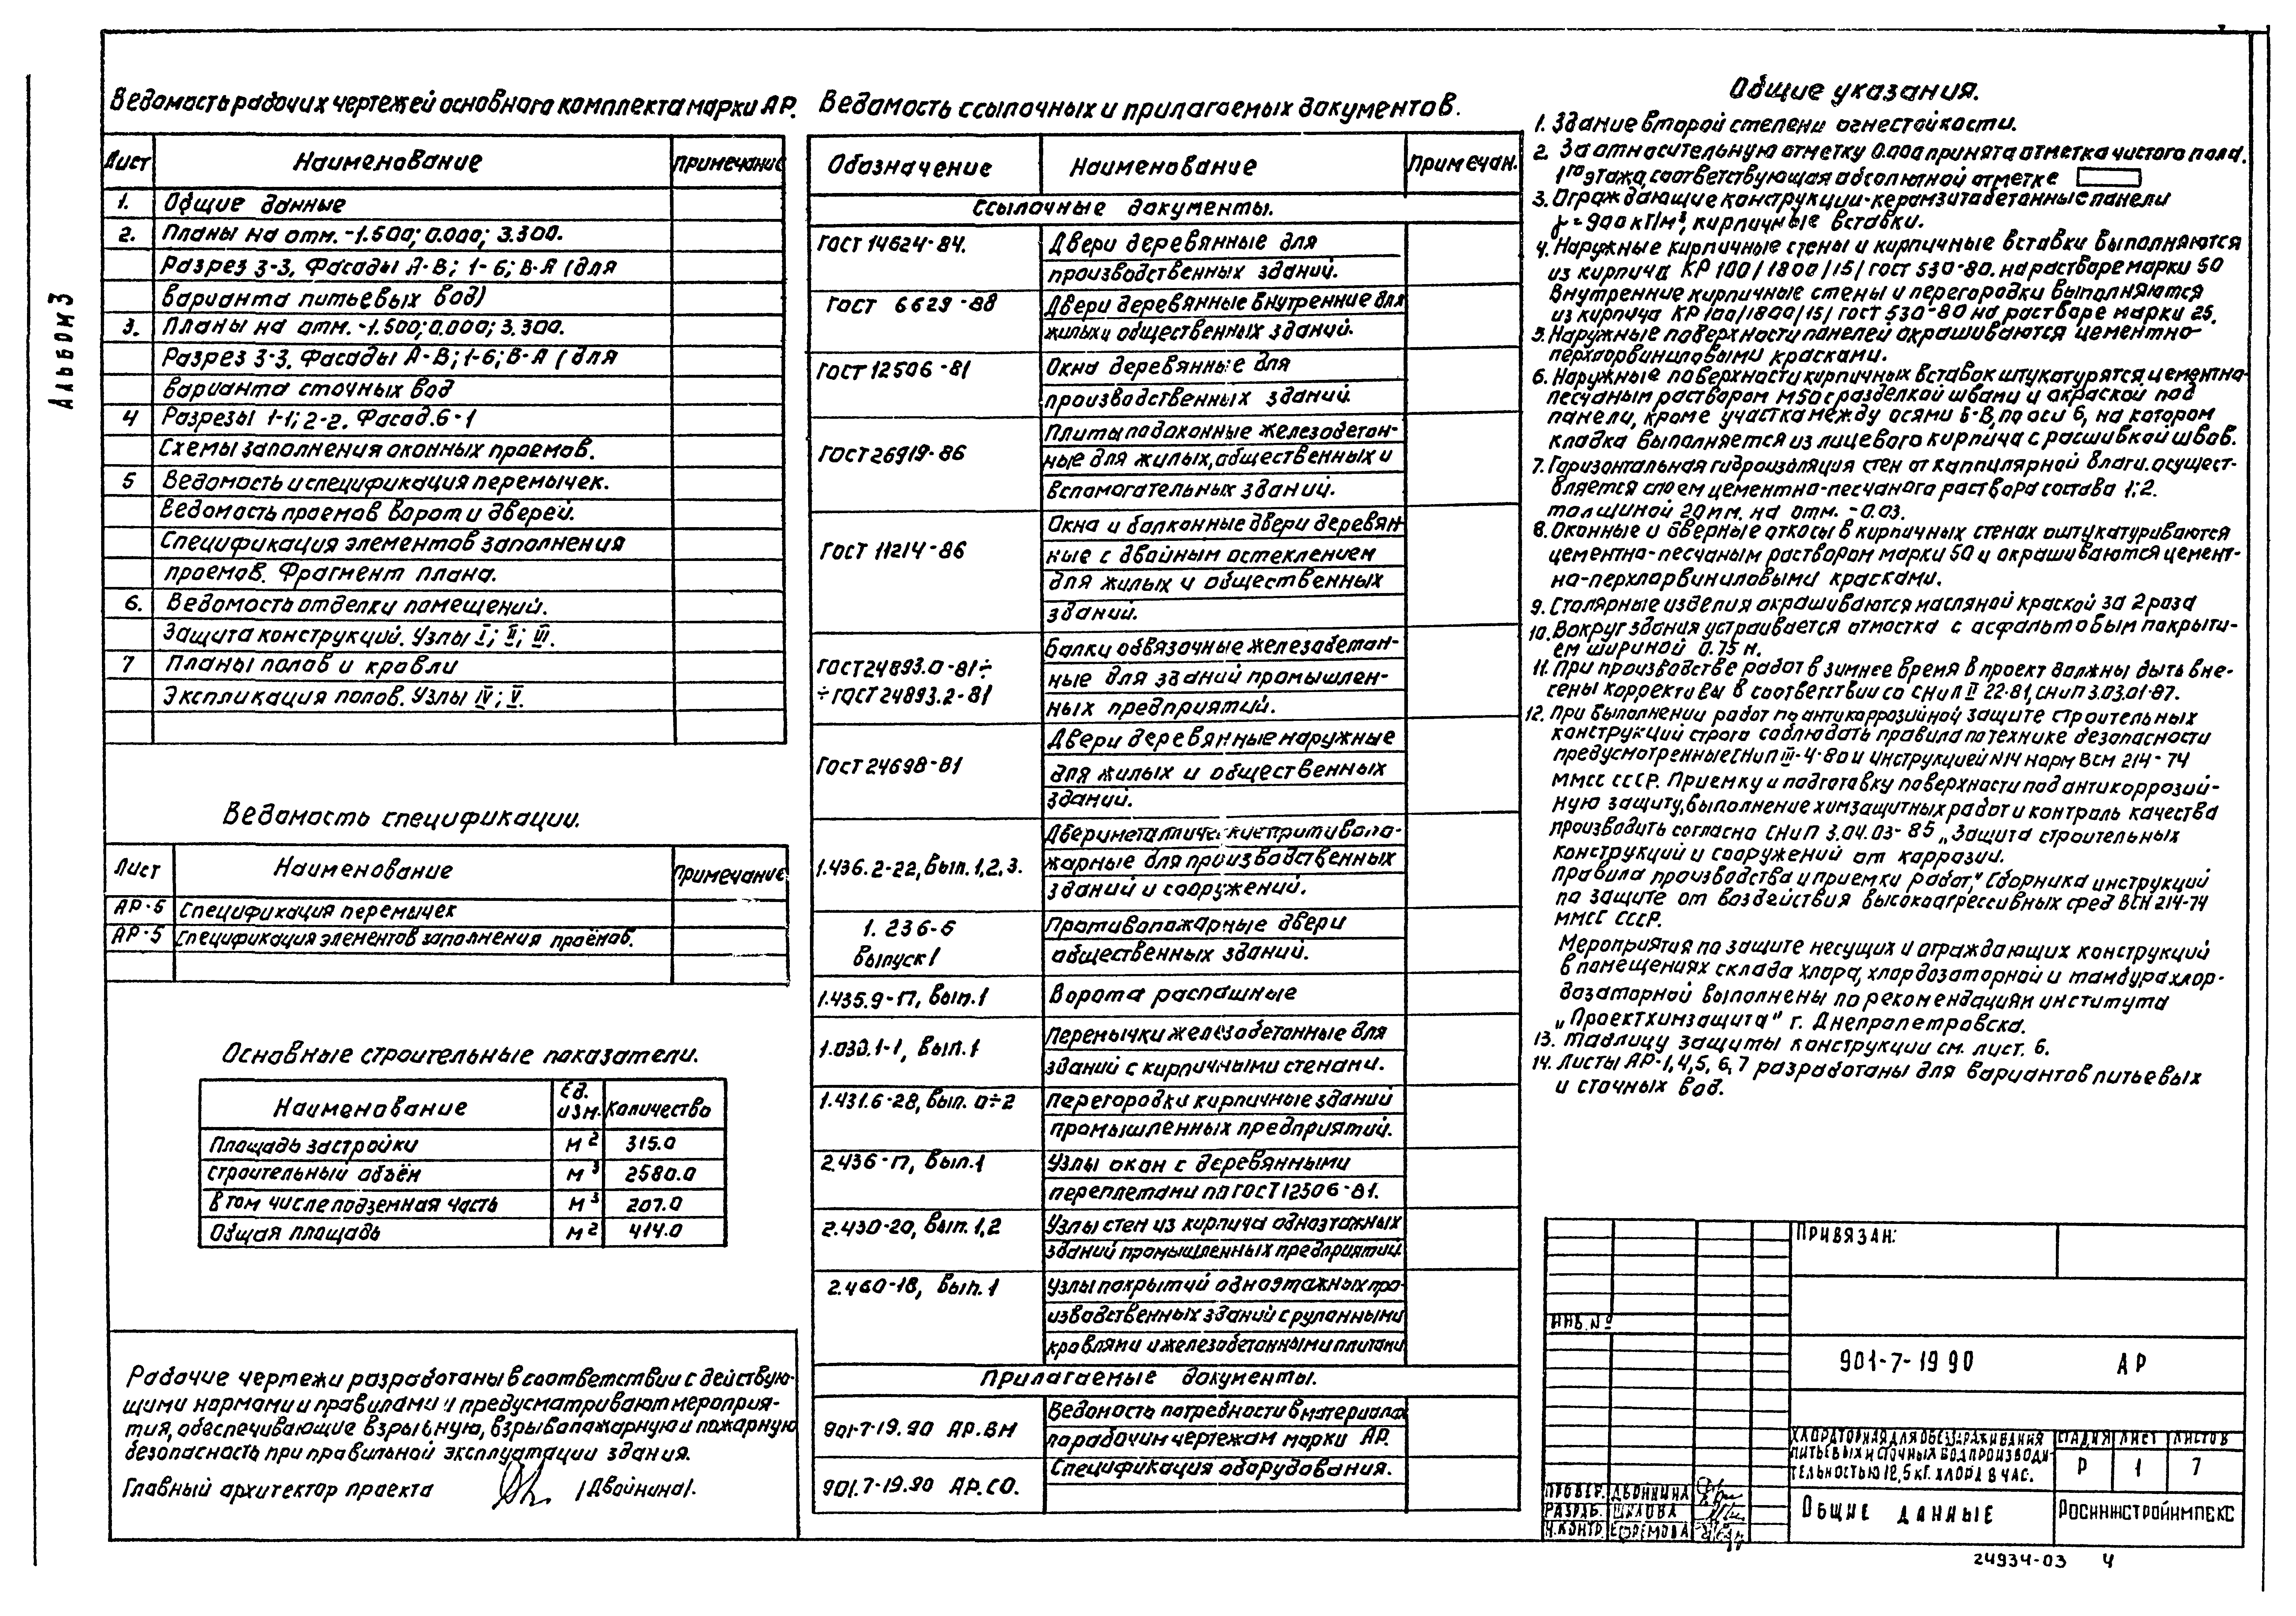 Альбом 3
Ведомость рабочих чертежей основного комплекта марки АР.
Лист Наименование Примечание
1. Общие данные
2. Планы на отм. -1.500; 0.000; 3.300.
Разрез 3-3. Фасады А-В; 1-6; В-А (для
варианта питьевых вод)
3. Планы на отм. -1.500; 0.000; 3.300.
Разрез 3-3. Фасады А-В; 1-6; В-А (для
варианта сточных вод
4 Разрезы 1-1; 2-2. Фасад. 6-1
Схемы заполнения оконных проемов.
5 Ведомость и спецификация перемычек.
Ведомость проемов ворот и дверей.
Спецификация элементов заполнения
проемов. Фрагмент плана.
6. Ведомость отделки помещений.
Защита конструкций. Узлы I; II; III.
7 Планы полов и кровли
Экспликация полов. Узлы IV; V.
Ведомость спецификации.
Лист Наименование Примечание
АР-5 Спецификация перемычек
АР-5 Спецификация элементов заполнения проёмов.
Основные строительные показатели.
Наименование Ед. изм. Количество
Площадь застройки м² 315.0
строительный объём м³ 2580.0
в том числе подземная часть м³ 207.0
Общая площадь м² 414.0
Рабочие чертежи разработаны в соответствии с действую-
щими нормами и правилами и предусматривают мероприя-
тия, обеспечивающие взрывную, взрывопожарную и пожарную
безопасность при правильной эксплуатации здания.
Главный архитектор проекта /Двойнина/.
Ведомость ссылочных и прилагаемых документов.
Обозначение Наименование Примечан.
Ссылочные документы.
ГОСТ 14624-84. Двери деревянные для
производственных зданий.
ГОСТ 6629-88 Двери деревянные внутренние для
жилых и общественных зданий.
ГОСТ 12506-81 Окна деревянные для
производственных зданий
ГОСТ 26919-86 Плиты подоконные железобетон-
ные для жилых, общественных и
вспомогательных зданий.
ГОСТ 11214-86 Окна и балконные двери деревян
ные с двойным остеклением
для жилых и общественных
зданий.
ГОСТ 24893.0-81÷ Балки обвязочные железобетон-
÷ГОСТ 24893.2-81 ные для зданий промышлен-
ных предприятий.
ГОСТ 24698-81 Двери деревянные наружные
для жилых и общественных
зданий.
1.436.2-22, вып. 1,2,3. Двери металлические противопо-
жарные для производственных
зданий и сооружений.
1. 236-6 Противопожарные двери
выпуск 1 общественных зданий.
1.435.9-17, вып. 1 Ворота распашные
1.038.1-1, вып. 1 Перемычки железобетонные для
зданий с кирпичными стенами.
1.431.6-28, вып. 0÷2 перегородки кирпичные зданий
промышленных предприятий.
2.436-17, вып. 1 Узлы окон с деревянными
переплетами по ГОСТ 12506-81.
2.430-20, вып. 1,2 Узлы стен из кирпича одноэтажных
зданий промышленных предприятий
2.460-18, вып. 1 Узлы покрытий одноэтажных про-
изводственных зданий с рулонными
кровлями и железобетонными плитами
Прилагаемые документы.
901-7-19.90 АР.ВМ Ведомость потребности в материалах
по рабочим чертежам марки АР.
901.7-19.90 АР.СО. Спецификация оборудования.
Общие указания.
1. Здание второй степени огнестойкости.
2. За относительную отметку 0.000 принята отметка чистого пола.
1го этажа, соответствующая абсолютной отметке
3. Ограждающие конструкции-керамзитобетонные панели
γ=900 кг/м³, кирпичные вставки.
4. Наружные кирпичные стены и кирпичные вставки выполняются
из кирпича КР 100/1800/15/ гост 530-80. на растворе марки 50
Внутренние кирпичные стены и перегородки выполняются
из кирпича КР 100/1800/15/ гост 530-80 на растворе марки 25.
5. Наружные поверхности панелей окрашиваются цементно-
перхлорвиниловыми красками.
6. Наружные поверхности кирпичных вставок штукатурятся цементно-
песчаным раствором М50 с разделкой швами и окраской под
панели, кроме участка между осями Б-В, по оси 6, на котором
кладка выполняется из лицевого кирпича с расшивкой швов.
7. Горизонтальная гидроизоляция стен от каппилярной влаги. осущест-
вляется слоем цементно-песчаного раствора состава 1:2.
толщиной 20 мм. на отм. -0.03.
8. Оконные и дверные откосы в кирпичных стенах оштукатуриваются
цементно-песчаным раствором марки 50 и окрашиваются цемент-
но-перхлорвиниловыми красками.
9. Столярные изделия окрашиваются масляной краской за 2 раза
10. Вокруг здания устраивается отмостка с асфальтовым покрыти-
ем шириной 0.75 м.
11. При производстве работ в зимнее время в проект должны быть вне-
сены коррективы в соответствии со СНиП II 22-81, СНиП 3.03.01-87.
12. При выполнении работ по антикоррозийной защите строительных
конструкций строго соблюдать правила по технике безопасности
предусмотренные СНиП III-4-80 и инструкцией N14 норм ВСН 214-74
ММСС СССР. Приемку и подготовку поверхности под антикоррозий-
ную защиту, выполнение химзащитных работ и контроль качества
производить согласно СНиП 3.04.03-85 „Защита строительных
конструкций и сооружений от коррозии.
Правила производства и приемки работ,“ Сборника инструкций
по защите от воздействия высокоагрессивных сред ВСН 214-74
ММСС СССР.
Мероприятия по защите несущих и ограждающих конструкций
в помещениях склада хлора, хлордозаторной и тамбура хлор-
дозаторной выполнены по рекомендациям института
„Проектхимзащита“ г. Днепропетровска.
13. Таблицу защиты конструкции см. лист. 6.
14. Листы АР-1,4,5, 6,7 разработаны для вариантов питьевых
и сточных вод.
Привязан:
Инв. №
901-7-19 90 АР
Хлораторная для обеззараживания
питьевых и сточных вод производи-
тельностью 12,5 кг. хлора в час.
Стадия Лист Листов
Р 1 7
Провер. Двойнина
Разраб. Шилова
Н.контр. Ефремова
Общие данные
Росинжстройимпекс
24934-03 4